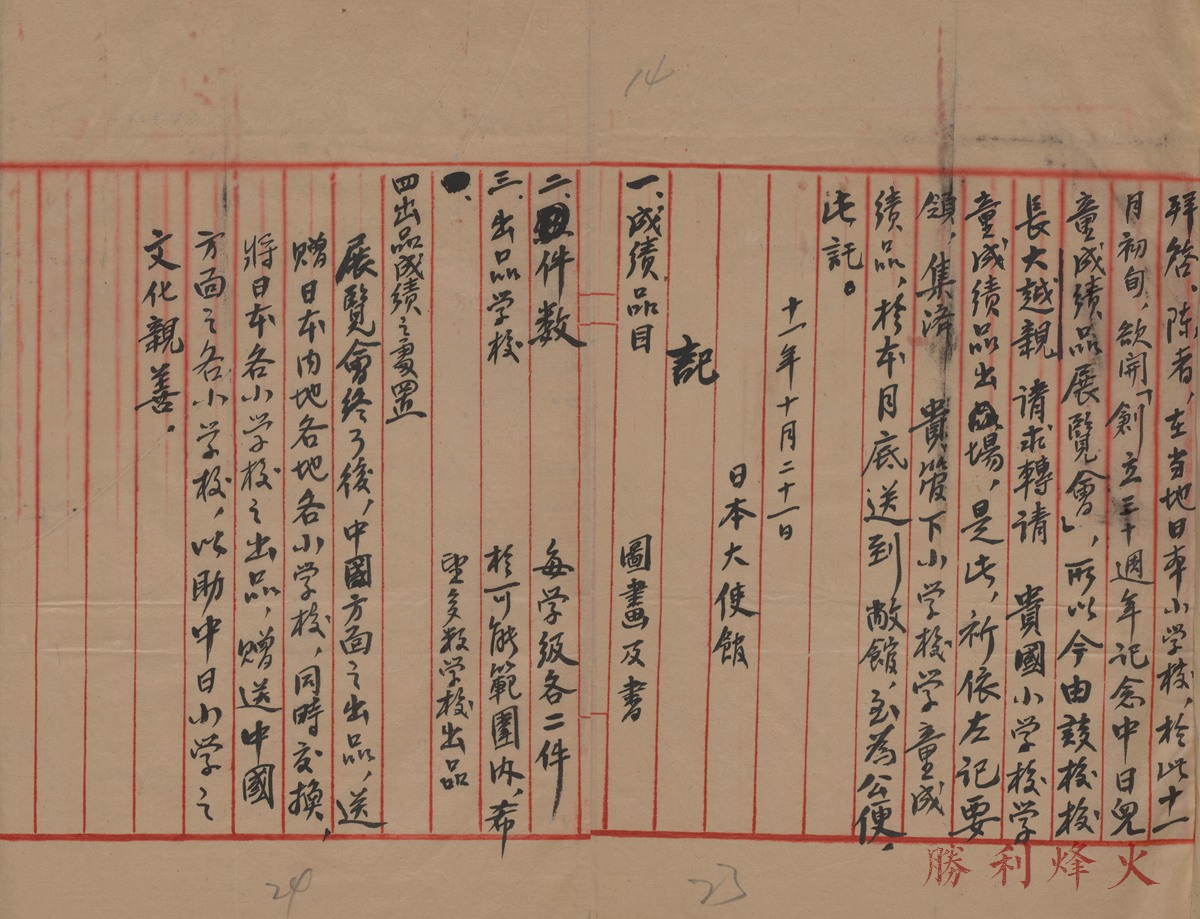 14
拜啓、陳者，在当地日本小学校，於此十一
月初旬，欲開「創立三十週年記念中日兒
童成績品展覽會」，所以今由該校校
長大越親 請求轉請 貴國小学校学
童成績品出場，是此，祈依左記要
領，集済 貴管下小学校学童成
績品，於本月底送到敝館，至為公便，
此託。
十一年十月二十一日
日本大使館
記
一、成績品目 圖畫及書
二、件数 每学级各二件
三、出品学校 於可能範圍内，希
望多数学校出品
四出品成績之處置
展覽會终了後，中國方面之出品，送
贈日本内地各地各小学校，同時交換，
將日本各小学校之出品，贈送中國
方面之各小学校，以助中日小学之
文化親善。
24
23
勝利烽火